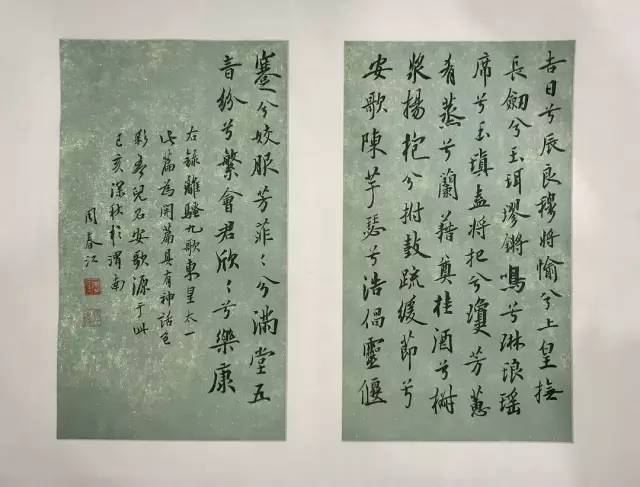 吉日兮辰良穆將愉兮上皇撫
長劍兮玉珥璆鏘鳴兮琳琅瑤
席兮玉瑱盍將把兮瓊芳蕙
肴蒸兮蘭藉奠桂酒兮椒
漿揚抱兮拊鼓疏緩節兮
安歌陳芋瑟兮浩倡靈偃
蹇兮姣服芳菲〻兮滿堂五
音紛兮繁會君欣〻兮樂康
右錄離騷九歌東皇太一
此篇為開篇具有神話色
彩吾兒名安歌源于此
己亥深秋於渭南
周春江